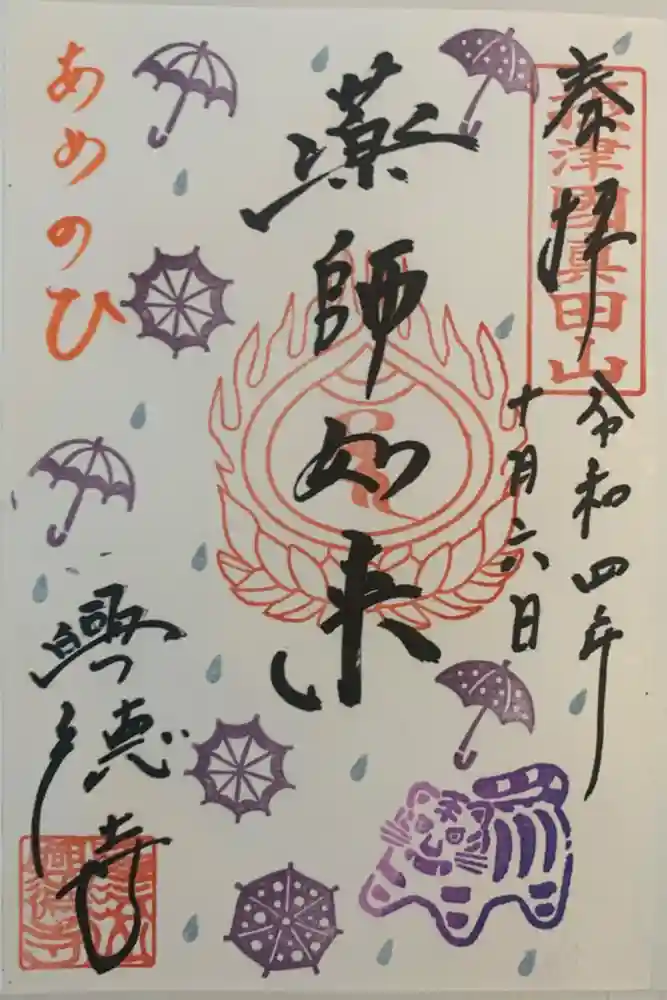 奉拝
摂津國真田山
令和四年
十月六日
薬師如来
あめのひ
興徳寺
興徳寺